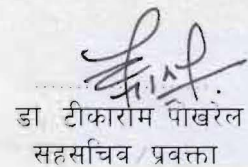 डा टीकाराम पोखरेल
सहसचिव/प्रवक्ता